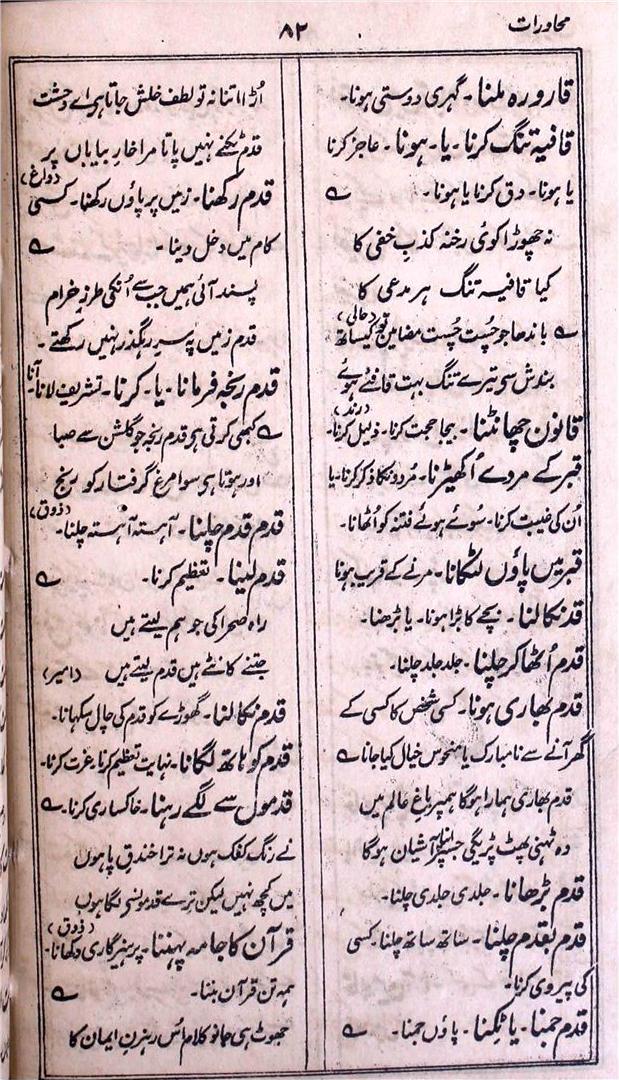 محاورات
۸۲
قارورہ ملنا۔ گہری دوستی ہونا۔
قافیہ تنگ کرنا۔ یا۔ ہونا۔ عاجز کرنا
یا ہونا۔ دق کرنا یا ہونا۔ ؎
نہ چھوڑا کوئی رخنہ کذب خفی کا
کیا قافیہ تنگ ہر مدعی کا
(حالی)
؎ باندھا جو چست چست مضامین تو کیساتھ
بندش سی تیرے تنگ بہت قافئے ہوئے
(رند)
قانون چھانٹنا۔ بیجا حجت کرنا۔ ذلیل کرنا۔
قبر کے مردے اُکھیڑنا۔ مُردونکا ذکر کرنا۔ یا
اُن کی غیبت کرنا۔ سوئے ہوئے فتنہ کو اُٹھانا۔
قبر میں پاؤں لٹکانا۔ مرنے کے قریب ہونا
قد نکالنا۔ بچے کا بڑا ہونا۔ یا بڑھنا۔
قدم اُٹھا کر چلنا۔ جلد جلد چلنا۔
قدم بھاری ہونا۔ کسی شخص کا کسی کے
گھر آنے سے نامبارک یا منحوس خیال کیا جانا ؎
قدم بھاری ہمارا ہوگا ہمپر باغ عالم میں
وہ ٹہنی پھٹ پڑیگی جسپر اپنا آشیان ہوگا
قدم بڑھانا۔ جلدی جلدی چلنا۔
قدم بقدم چلنا۔ ساتھ ساتھ چلنا۔ کسی
کی پیروی کرنا۔
قدم جمنا۔ یا ٹکنا۔ پاؤں جمنا۔ ؎
اُڑا اتنا نہ تو لطف خلش جاتا ہی اے وحشت
قدم ٹکنے نہیں پاتا مرا خار بیاباں پر
(داغ)
قدم رکھنا۔ زمیں پر پاؤں رکھنا۔ کسی
کام میں دخل دینا۔ ؎
پسند آئی ہمیں جب سے اُنکی طرز خرام
قدم زمیں پہ سر رہگذر نہیں رکھتے۔
قدم رنجہ فرمانا۔ یا۔ کرنا۔ تشریف لانا۔ آنا
؎ کبھی کرتی ہی قدم رنجہ جو گلشن سے صبا
اور ہوتا ہی سوا مرغ گرفتار کو رنج
(ذوق)
قدم قدم چلنا۔ آہستہ آہستہ چلنا۔
قدم لینا۔ تعظیم کرنا۔ ؎
راہ صحرا کی جو ہم لیتے ہیں
جتنے کانٹے ہیں قدم لیتے ہیں (امیر)
قدم نکالنا۔ گھوڑے کو قدم کی چال سکہانا۔
قدم کو ہاتھ لگانا۔ نہایت تعظیم کرنا۔ عزت کرنا۔
قدموں سے لگے رہنا۔ خاکساری کرنا۔ ؎
نے رنگ کفک ہوں نہ ترا خندق پا ہوں
میں کچھ نہیں لیکن ترے قدمونسی لگا ہوں
(ذوق)
قرآن کا جامہ پہننا۔ پرہیزگاری دکھانا۔
ہمہ تن قرآن بننا۔ ؎
جھوٹ ہی جانو کلام اُس رہزن ایمان کا